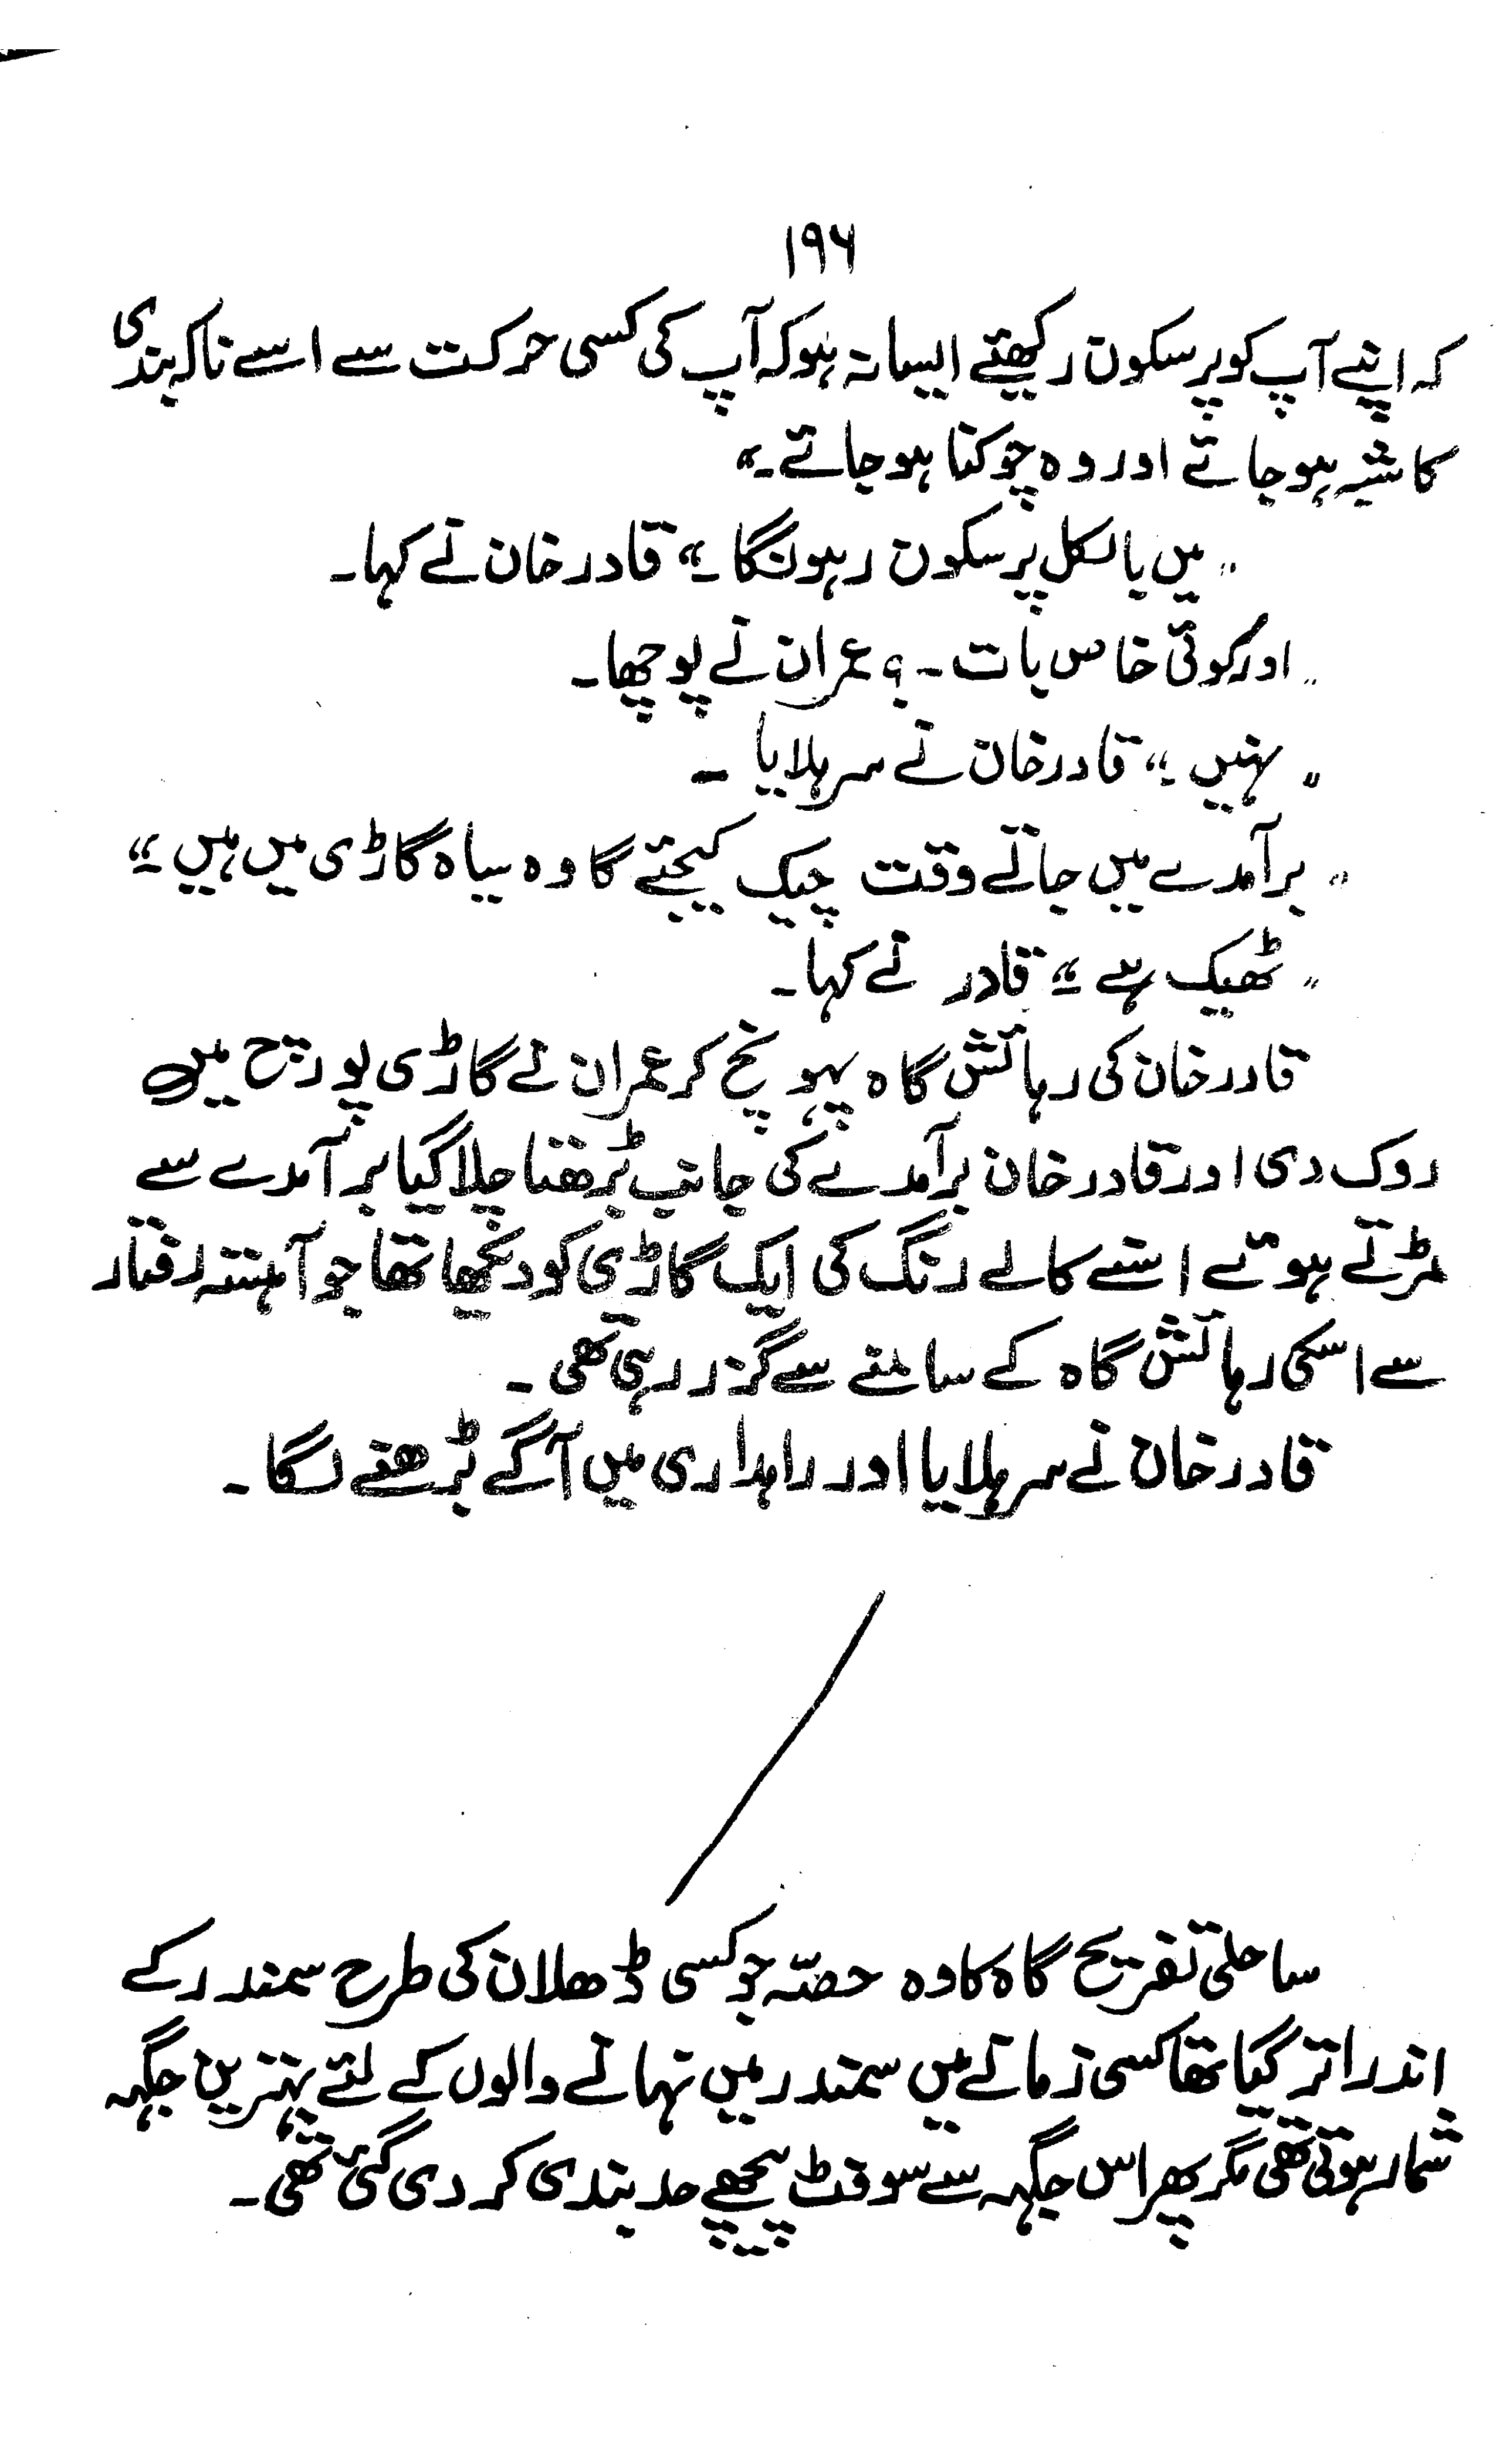 ۱۹۶
کہ اپنے آپ کو پر سکون رکھیئے ایسا نہ ہو کہ آپ کی کسی حرکت سے اسے ناکہ بندی
کا شبہ ہو جائے اور وہ چوکنا ہو جائے ۔“
” میں بالکل پر سکون رہونگا ۔“ قادر خان نے کہا ۔
” اور کوئی خاص بات ۔ ؟ عمران نے پوچھا ۔
” نہیں ۔“ قادر خان نے سر ہلایا ۔
” برآمدے میں جاتے وقت چیک کیجئے گا وہ سیاہ گاڑی میں ہیں ۔“
” ٹھیک ہے ۔“ قادر نے کہا ۔
قادر خان کی رہائش گاہ پہونچ کر عمران نے گاڑی پورچ میں
روک دی اور قادر خان برآمدے کی جانب بڑھتا چلا گیا برآمدے سے
مڑتے ہوئے اسنے کالے رنگ کی ایک گاڑی کو دیکھا تھا جو آہستہ رفتار
سے اسکی رہائش گاہ کے سامنے سے گزر رہی تھی ۔
قادر خان نے سر ہلایا اور راہداری میں آگے بڑھنے لگا ۔
ساحلی تفریح گاہ کا وہ حصّہ جو کسی ڈھلان کی طرح سمندر کے
اندر اتر گیا تھا کسی زمانے میں سمندر میں نہانے والوں کے لئے بہترین جگہہ
شمار ہوتی تھی مگر پھر اس جگہہ سے سو فٹ پیچھے حد بندی کر دی گئی تھی ۔